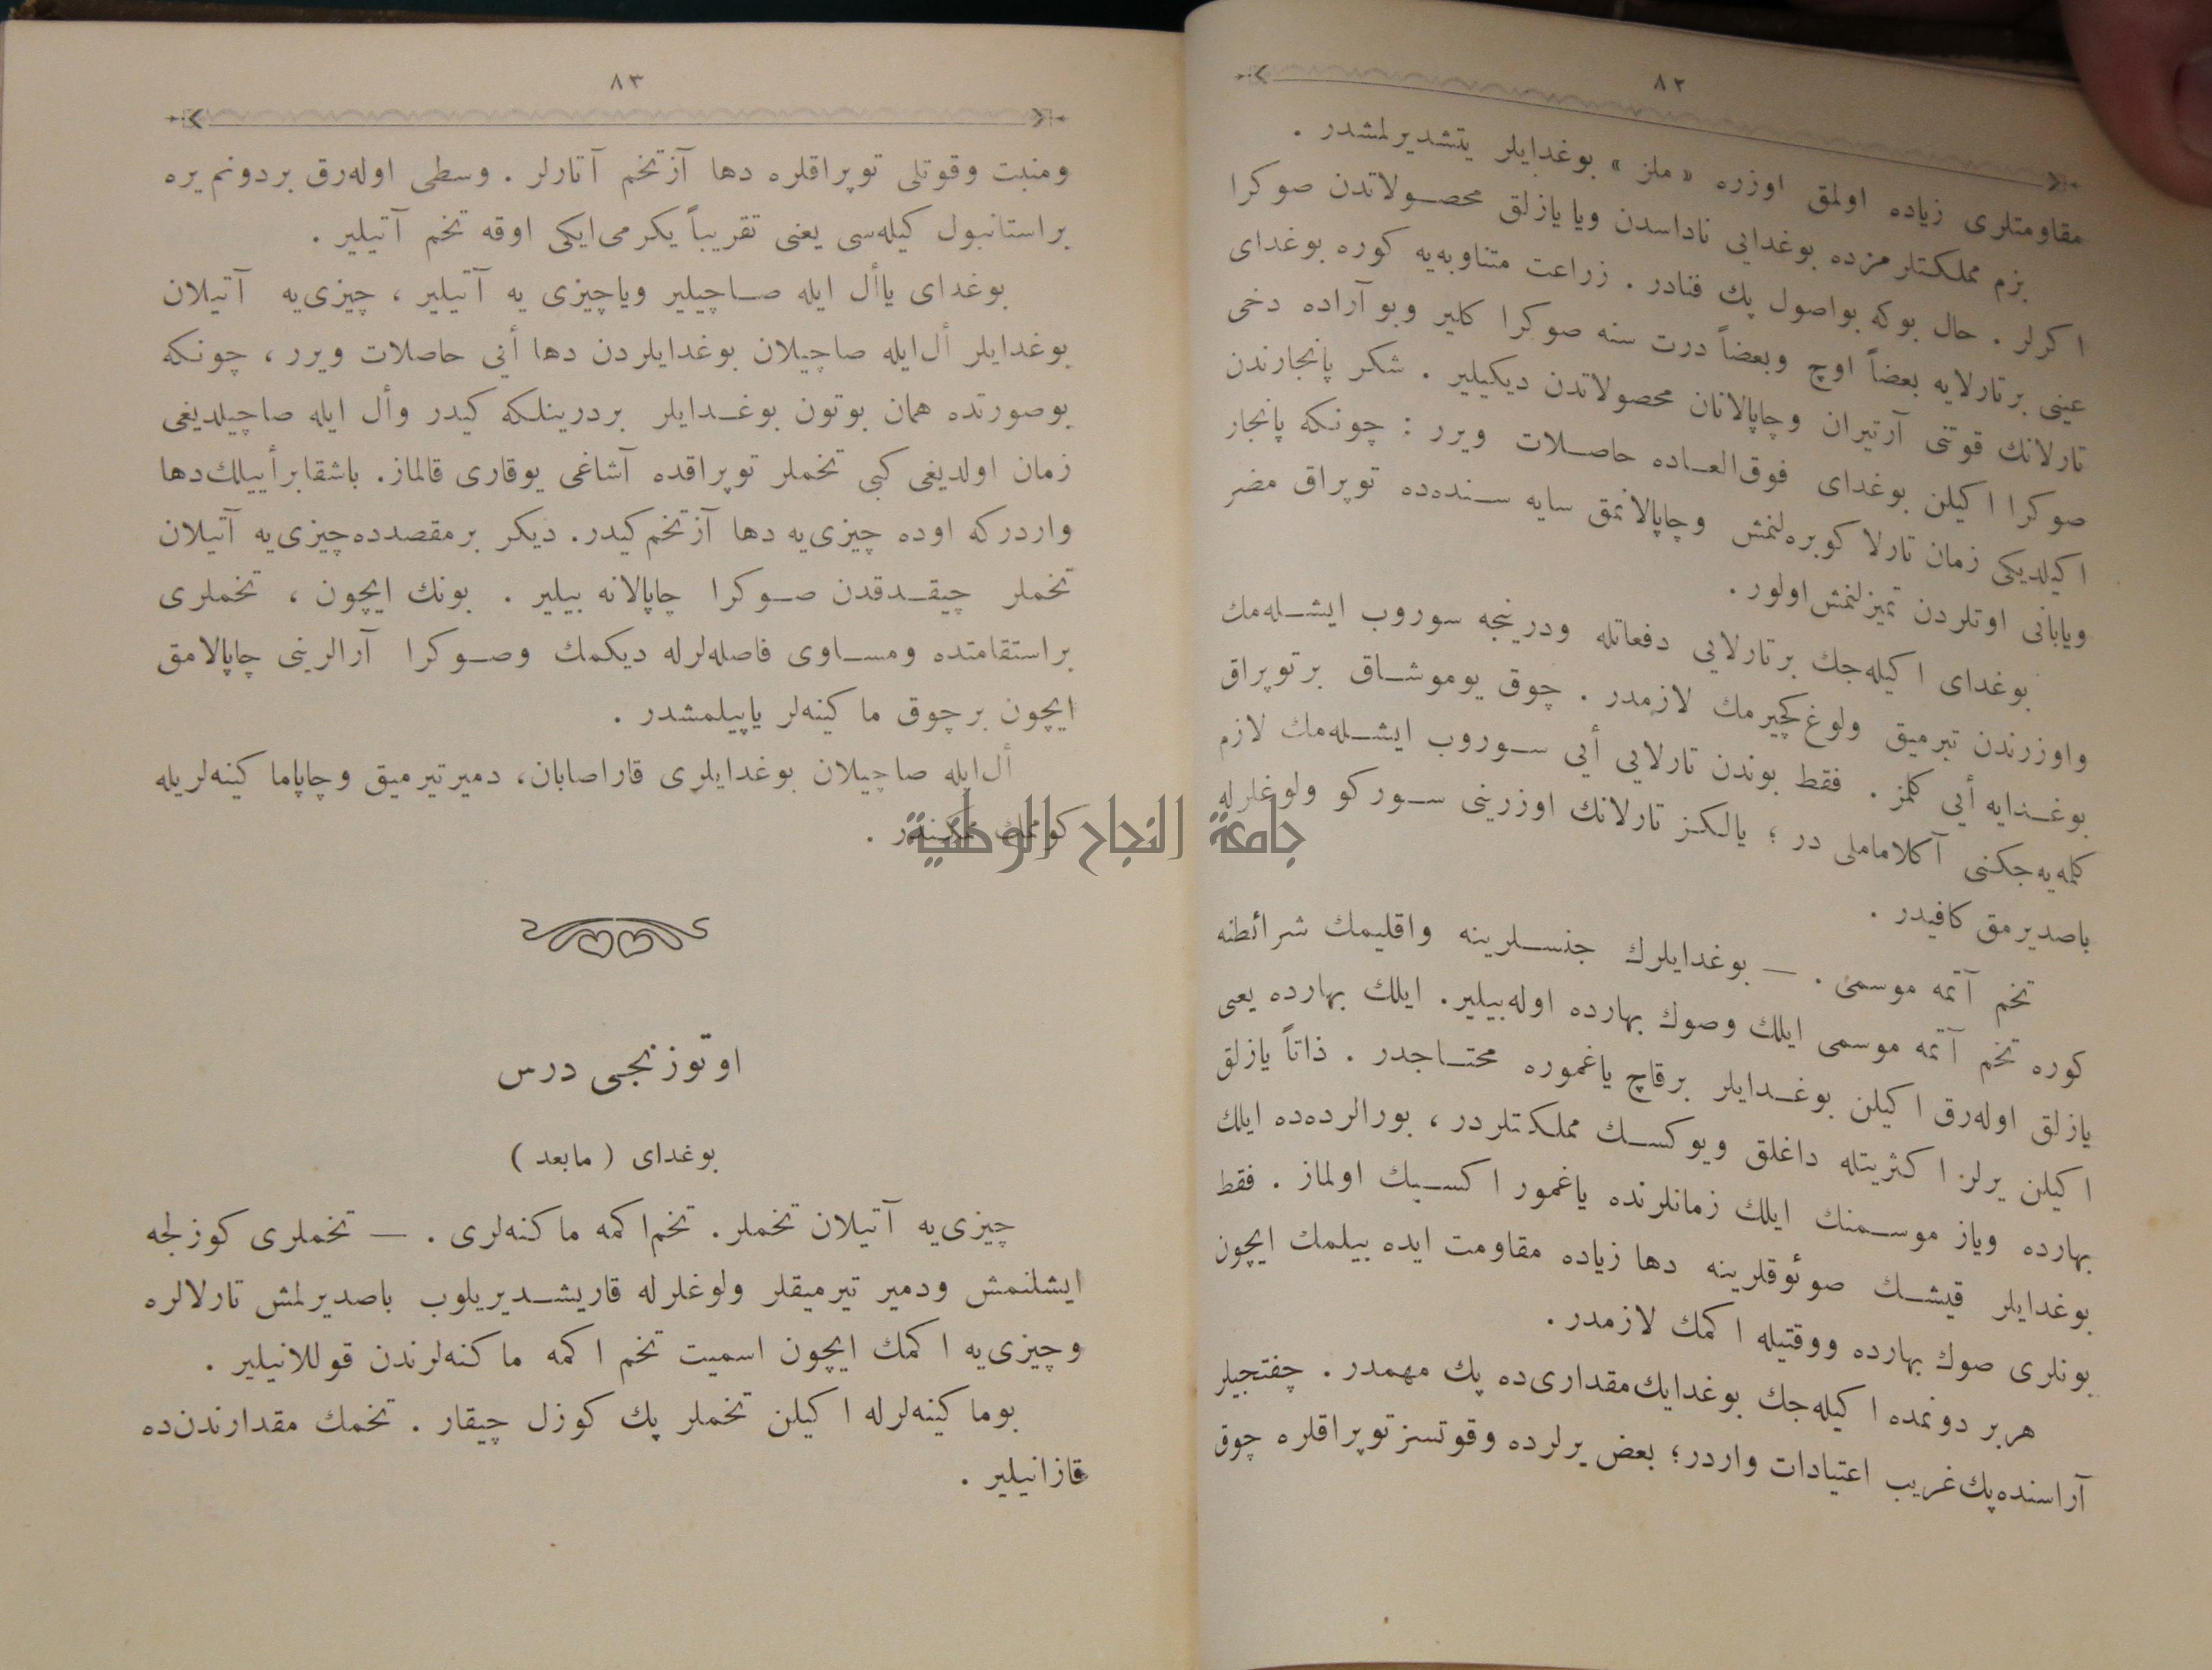 ٨٢
مقاومتلری زیاده اولمق اوزره « ملز » بوغدایلر یتشدیرلمشدر .
بزم مملكتلرمزده بوغدایی ناداسدن ویا یازلق محصولاتدن صوكرا
اكرلر . حال بوكه بواصول پك فنادر . زراعت متناوبه‌یه كوره بوغدای
عینی برتارلایه بعضاً اوچ وبعضاً درت سنه صوكرا كلیر وبو آراده دخی
تارلانك قوتنی آرتیران وچاپالانان محصولاتدن دیكیلیر . شكر پانجارندن
صوكرا اكیلن بوغدای فوق‌العاده حاصلات ویرر : چونكه پانجار
اكیلدیكی زمان تارلا كوبره‌لنمش وچاپالانمق سایه سنده‌ده توپراق مضر
ویابانی اوتلردن تمیزلنمش اولور .
بوغدای اكیله‌جك برتارلایی دفعاتله ودرینجه سوروب ایشله‌مك
واوزرندن تیرمیق ولوغ كچیرمك لازمدر . چوق یوموشاق برتوپراق
بوغدایه أیی كلمز . فقط بوندن تارلایی أیی سوروب ایشله‌مك لازم
كلمه‌یه‌جكنی آكلاماملی در ؛ یالكز تارلانك اوزرینی سوركو ولوغلرله
باصدیرمق كافیدر .
تخم آتمه موسمی . — بوغدایلرك جنسلرینه واقلیمك شرائطنه
كوره تخم آتمه موسمی ایلك وصوك بهارده اوله‌بیلیر . ایلك بهارده یعنی
یازلق اوله‌رق اكیلن بوغدایلر برقاچ یاغموره محتاجدر . ذاتاً یازلق
اكیلن یرلر اكثریتله داغلق ویوكسك مملكتلردر ، بورالرده‌ده ایلك
بهارده ویاز موسمنك ایلك زمانلرنده یاغمور اكسیك اولماز . فقط
بوغدایلر قیشك صوئوقلرینه دها زیاده مقاومت ایده بیلمك ایچون
بونلری صوك بهارده ووقتیله اكمك لازمدر .
هربر دونمده اكیله‌جك بوغدایك مقداری‌ده پك مهمدر . چفتجیلر
آراسنده پك غریب اعتیادات واردر ؛ بعض یرلرده وقوتسز توپراقلره چوق
٨٣
ومنبت وقوتلی توپراقلره دها آز تخم آتارلر . وسطی اوله‌رق بردونم یره
براستانبول كیله‌سی یعنی تقریباً یكرمی‌ایكی اوقه تخم آتیلیر .
بوغدای یاأل ایله صاچیلیر ویاچیزی یه آتیلیر ، چیزی‌یه آتیلان
بوغدایلر أل‌ایله صاچیلان بوغدایلردن دها أیی حاصلات ویرر ، چونكه
بوصورتده همان بوتون بوغدایلر بردرینلكه كیدر وأل ایله صاچیلدیغی
زمان اولدیغی كبی تخملر توپراقده آشاغی یوقاری قالماز . باشقا برأییلك‌دها
واردركه اوده چیزی‌یه دها آز تخم كیدر . دیكر برمقصدده چیزی‌یه آتیلان
تخملر چیقدقدن صوكرا چاپالانه بیلیر . بونك ایچون ، تخملری
براستقامتده ومساوی فاصله‌لرله دیكمك وصوكرا آرالرینی چاپالامق
ایچون برچوق ماكینه‌لر یاپیلمشدر .
أل‌ایله صاچیلان بوغدایلری قاراصابان ، دمیرتیرمیق وچاپاما كینه‌لریله
كوممك ممكندر .
جامعة النجاح الوطنية
اوتوزنجی درس
بوغدای ( مابعد )
چیزی‌یه آتیلان تخملر . تخم اكمه ماكنه‌لری . — تخملری كوزلجه
ایشلنمش ودمیر تیرمیقلر ولوغلرله قاریشدیریلوب باصدیرلمش تارلالره
وچیزی‌یه اكمك ایچون اسمیت تخم اكمه ماكنه‌لرندن قوللانیلیر .
بوما كینه‌لرله اكیلن تخملر پك كوزل چیقار . تخمك مقدارندن‌ده
قازانیلیر .